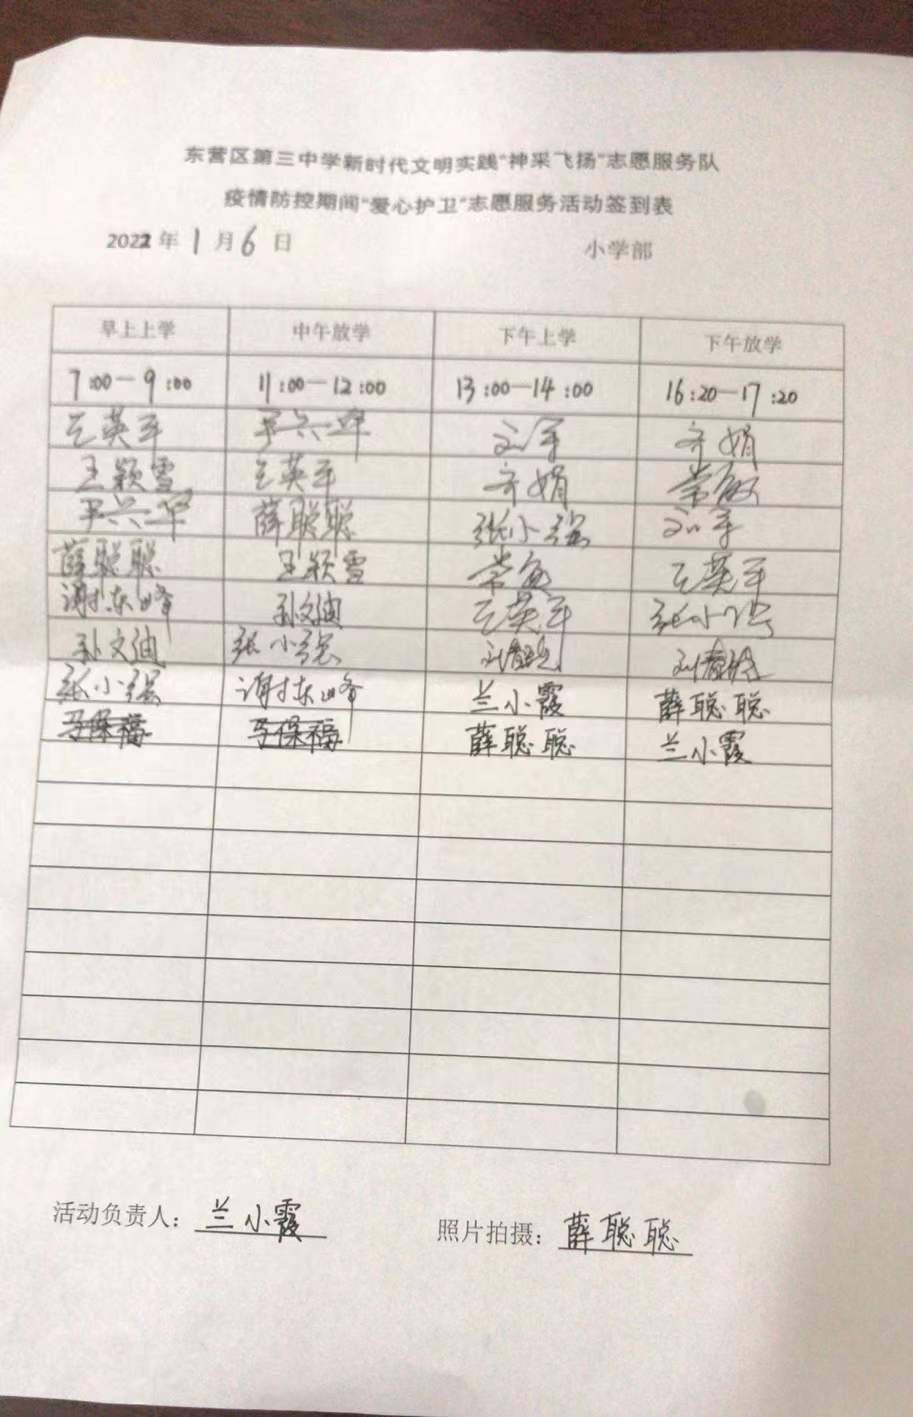 东营区第三中学新时代文明实践“神采飞扬”志愿服务队
疫情防控期间“爱心护卫”志愿服务活动签到表
2022年1月6日 小学部
早上上学 中午放学 下午上学 下午放学
7:00—9:00 11:00—12:00 13:00—14:00 16:20—17:20
王英军 尹兴华 刘军 齐娟
王颖雪 王英军 齐娟 常敏
尹兴华 薛聪聪 张小强 刘军
薛聪聪 王颖雪 常敏 王英军
谢东峰 孙文迪 王英军 张小强
孙文迪 张小强
张小强 谢东峰 兰小霞 薛聪聪
马保福 马保福 薛聪聪 兰小霞
活动负责人：兰小霞 照片拍摄：薛聪聪